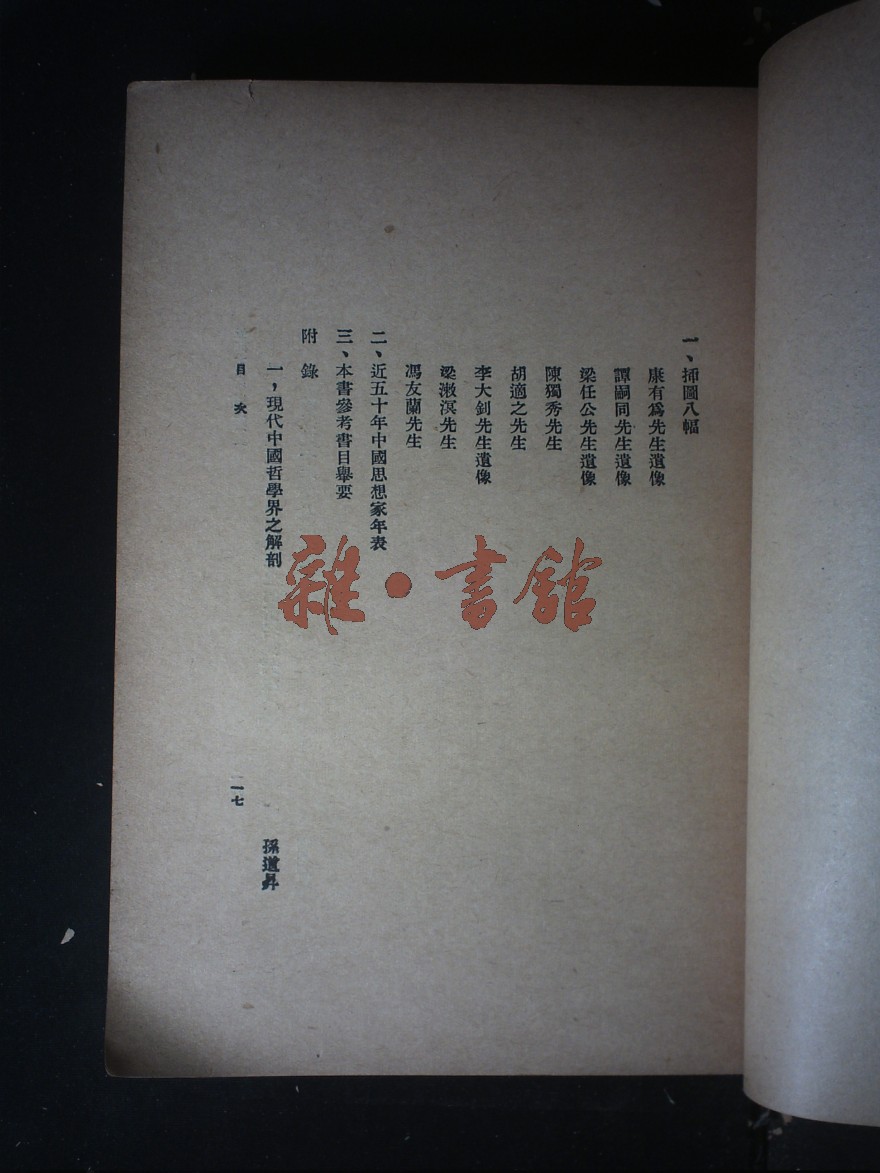 一、揷圖八幅
康有爲先生遺像
譚嗣同先生遺像
梁任公先生遺像
陳獨秀先生
胡適之先生
李大釗先生遺像
梁漱溟先生
馮友蘭先生
二、近五十年中國思想家年表
三、本書參考書目舉要
附錄
一，現代中國哲學界之解剖 孫道昇
目次 一七
雜·書館